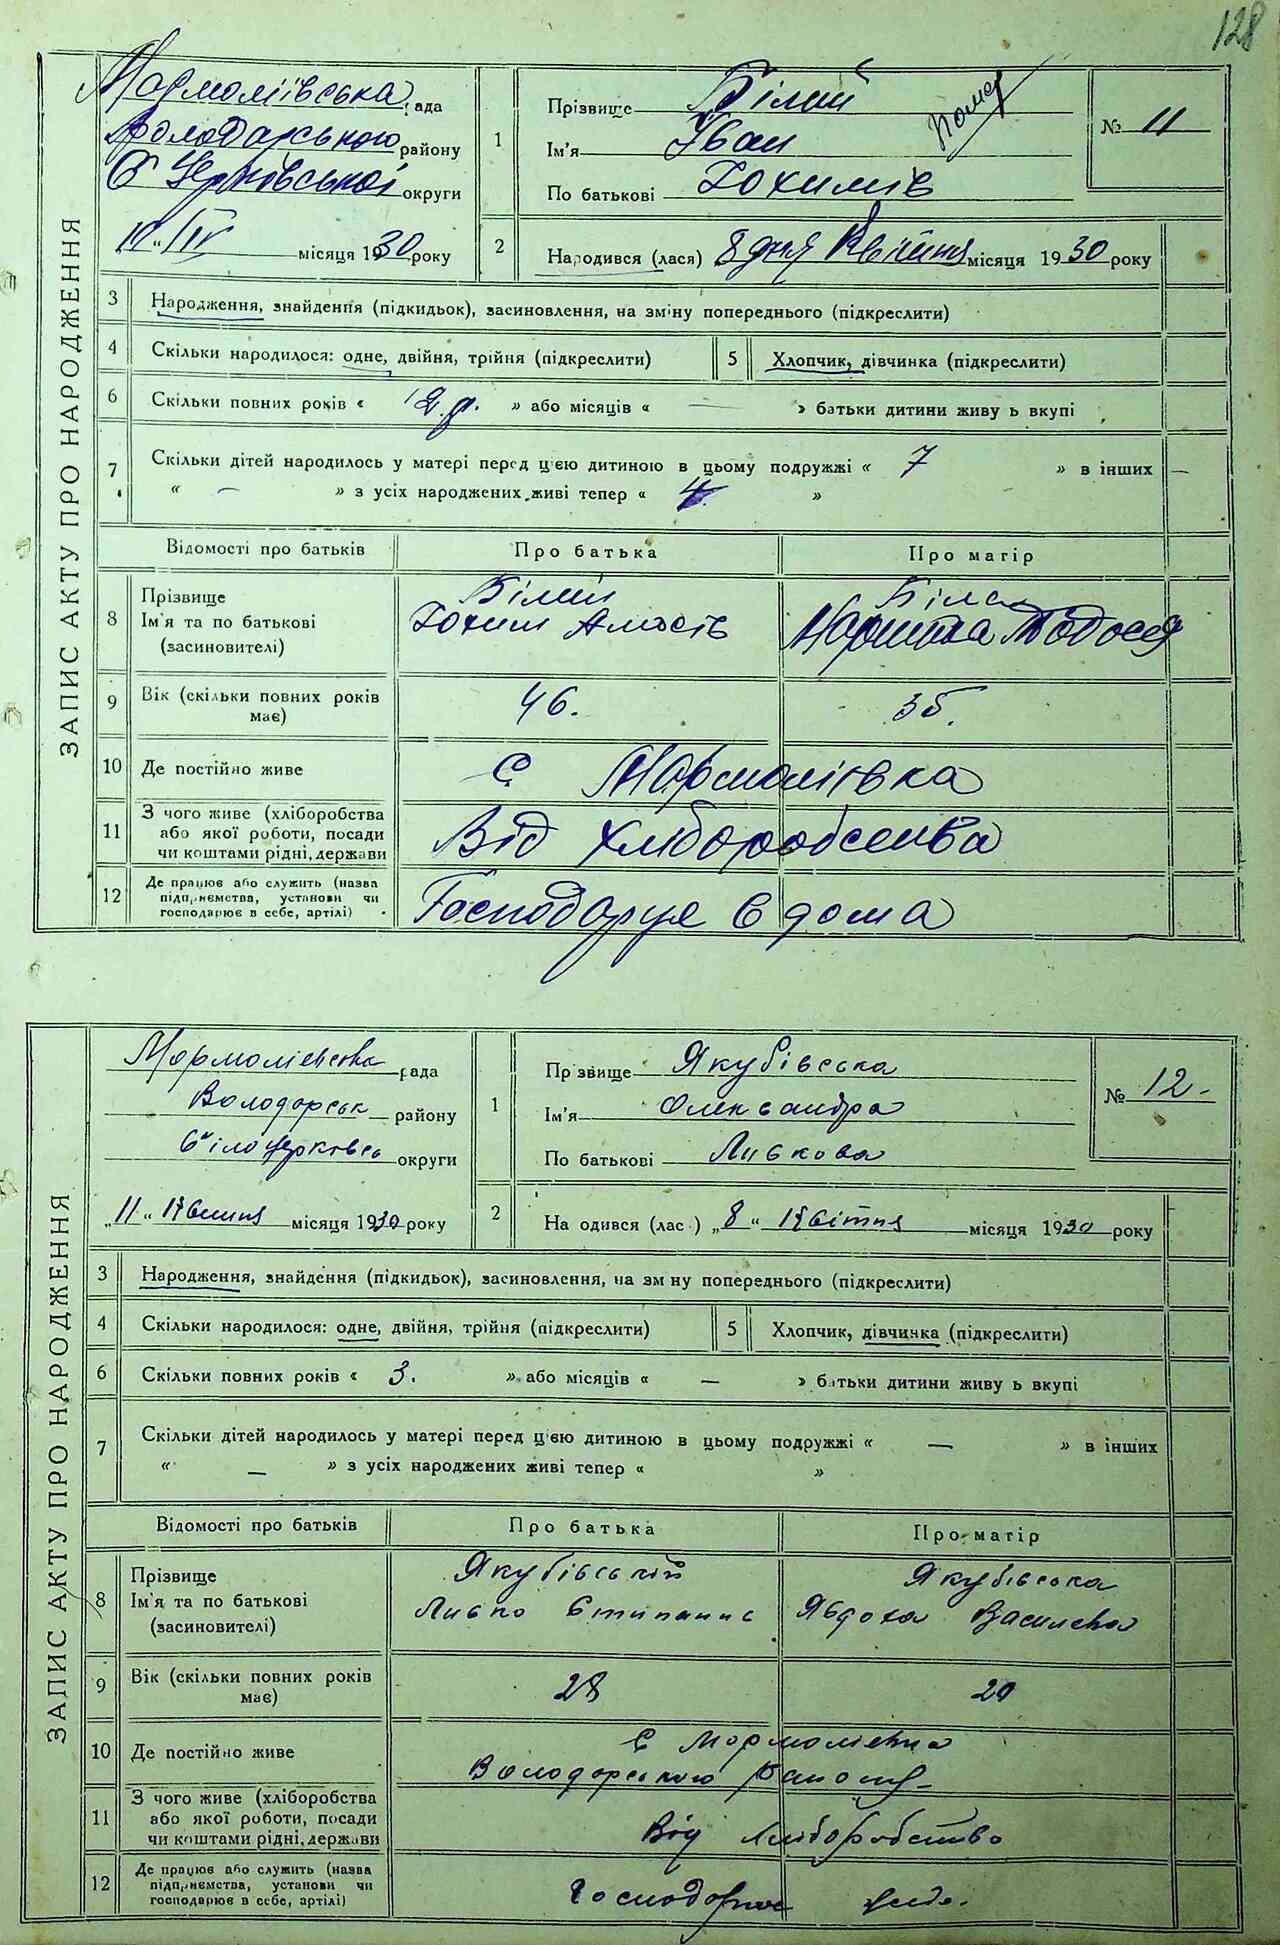 128
ЗАПИС АКТУ ПРО НАРОДЖЕННЯ
Мармоліївська рада
Володарського району
Б Церківської округи
"IV місяця 1930 року
1
Прізвище Білий
Ім'я Іван
По батькові Йохимів
помер
№ 11
2
Народився (лася) 8 дня Квітня місяця 1930 року
3 Народження, знайдення (підкидьок), засиновлення, на зміну попереднього (підкреслити)
4 Скільки народилося: одне, двійня, трійня (підкреслити) 5 Хлопчик, дівчинка (підкреслити)
6 Скільки повних років « 12 р. » або місяців « — » батьки дитини живу ь вкупі
7 Скільки дітей народилось у матері перед цією дитиною в цьому подружжі « 7 » в інших —
« – » з усіх народжених живі тепер « 4 »
Відомості про батьків Про батька Про матір
8 Прізвище
Ім'я та по батькові
(засиновителі)
Білий
Йохим
Біла
Марина Тодося
9 Вік (скільки повних років
має)
46. 35.
10 Де постійно живе С Мармоліївка
11 З чого живе (хліборобства
або якої роботи, посади
чи коштами рідні, держави
Від хліборобсства
12 Де працює або служить (назва
підприємства, установи чи
господарює в себе, артілі)
Господарує в дома
ЗАПИС АКТУ ПРО НАРОДЖЕННЯ
Мармолієвська рада
Володарськ району
Білоцерковсь округи
„11" Квітня місяця 1930 року
1
Прізвище Якубівська
Ім'я Олександра
По батькові Левкова
№ 12.
2
На одився (лас ) „8" Квітня місяця 1930 року
3 Народження, знайдення (підкидьок), засиновлення, на зм ну попереднього (підкреслити)
4 Скільки народилося: одне, двійня, трійня (підкреслити) 5 Хлопчик, дівчинка (підкреслити)
6 Скільки повних років « 3. » або місяців « — » батьки дитини живу ь вкупі
7 Скільки дітей народилось у матері перед цією дитиною в цьому подружжі « — » в інших
« — » з усіх народжених живі тепер « »
Відомості про батьків Про батька Про матір
8 Прізвище
Ім'я та по батькові
(засиновителі)
Якубівський
Левко Степанис
Якубівська
Явдоха Василева
9 Вік (скільки повних років
має)
28 20
10 Де постійно живе
С Мармолієвка
Володарського району
11 З чого живе (хліборобства
або якої роботи, посади
чи коштами рідні, держави
Від хліборобство
12 Де працює або служить (назва
підприємства, установи чи
господарює в себе, артілі)
Господорює